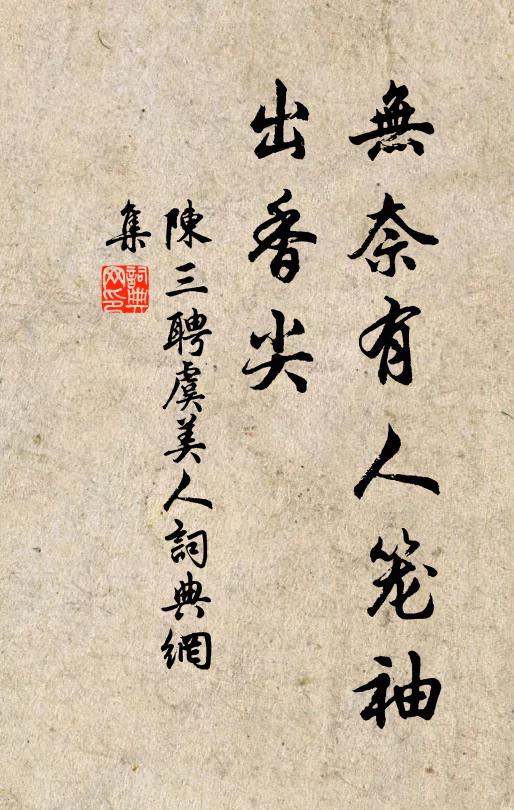 無奈有人笼袖
出香尖
陳三聘虞美人詞典網
集
詞典
网印